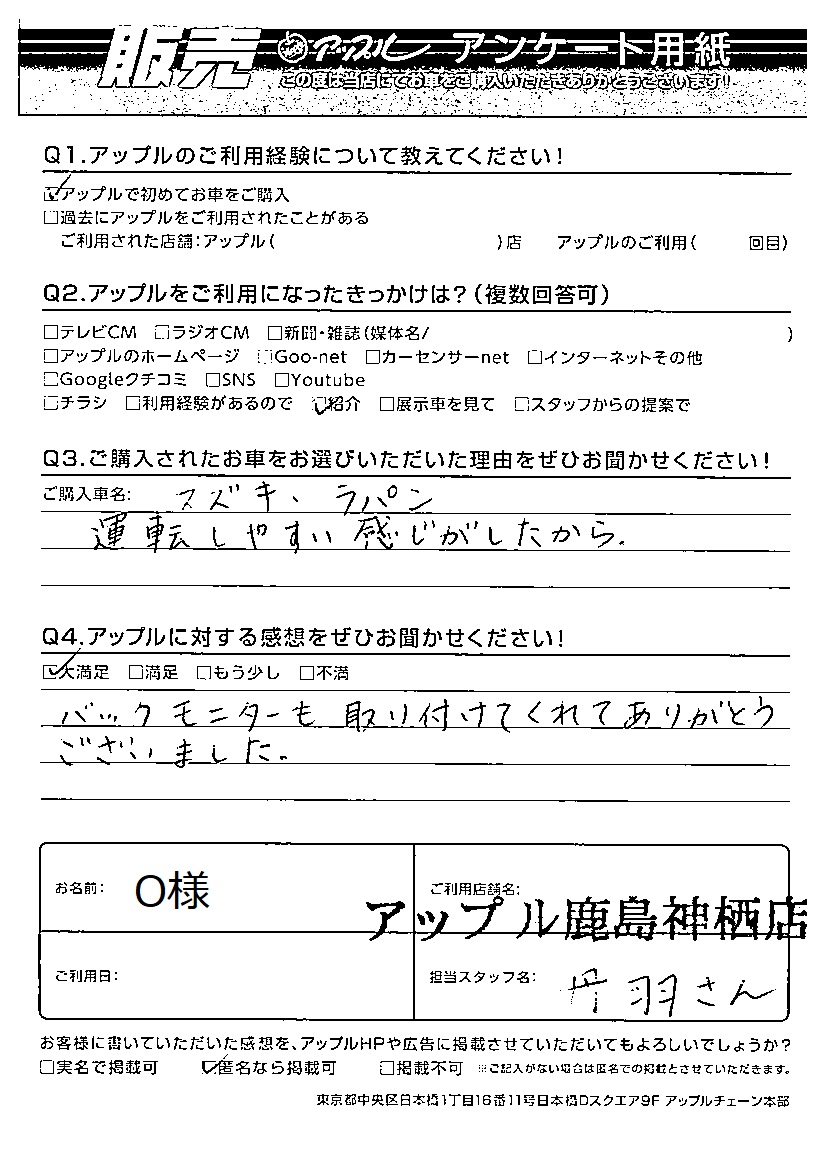 販売 アップル アンケート用紙
この度は当店にてお車をご購入いただきありがとうございます!
Q1.アップルのご利用経験について教えてください!
☑アップルで初めてお車をご購入
□過去にアップルをご利用されたことがある
ご利用された店舗:アップル( )店 アップルのご利用( 回目)
Q2.アップルをご利用になったきっかけは?(複数回答可)
□テレビCM □ラジオCM □新聞・雑誌(媒体名/ )
□アップルのホームページ □Goo-net □カーセンサーnet □インターネットその他
□Googleクチコミ □SNS □Youtube
□チラシ □利用経験があるので ☑紹介 □展示車を見て □スタッフからの提案で
Q3.ご購入されたお車をお選びいただいた理由をぜひお聞かせください!
ご購入車名: スズキ、ラパン
運転しやすい感じがしたから.
Q4.アップルに対する感想をぜひお聞かせください!
☑大満足 □満足 □もう少し □不満
バックモニターも取り付けてくれてありがとう
ございました。
お名前: O様
ご利用店舗名:
アップル鹿島神栖店
ご利用日:
担当スタッフ名: 丹羽さん
お客様に書いていただいた感想を、アップルHPや広告に掲載させていただいてもよろしいでしょうか?
□実名で掲載可 ☑匿名なら掲載可 □掲載不可 ※ご記入がない場合は匿名での掲載とさせていただきます。
東京都中央区日本橋1丁目16番11号日本橋Dスクエア9F アップルチェーン本部